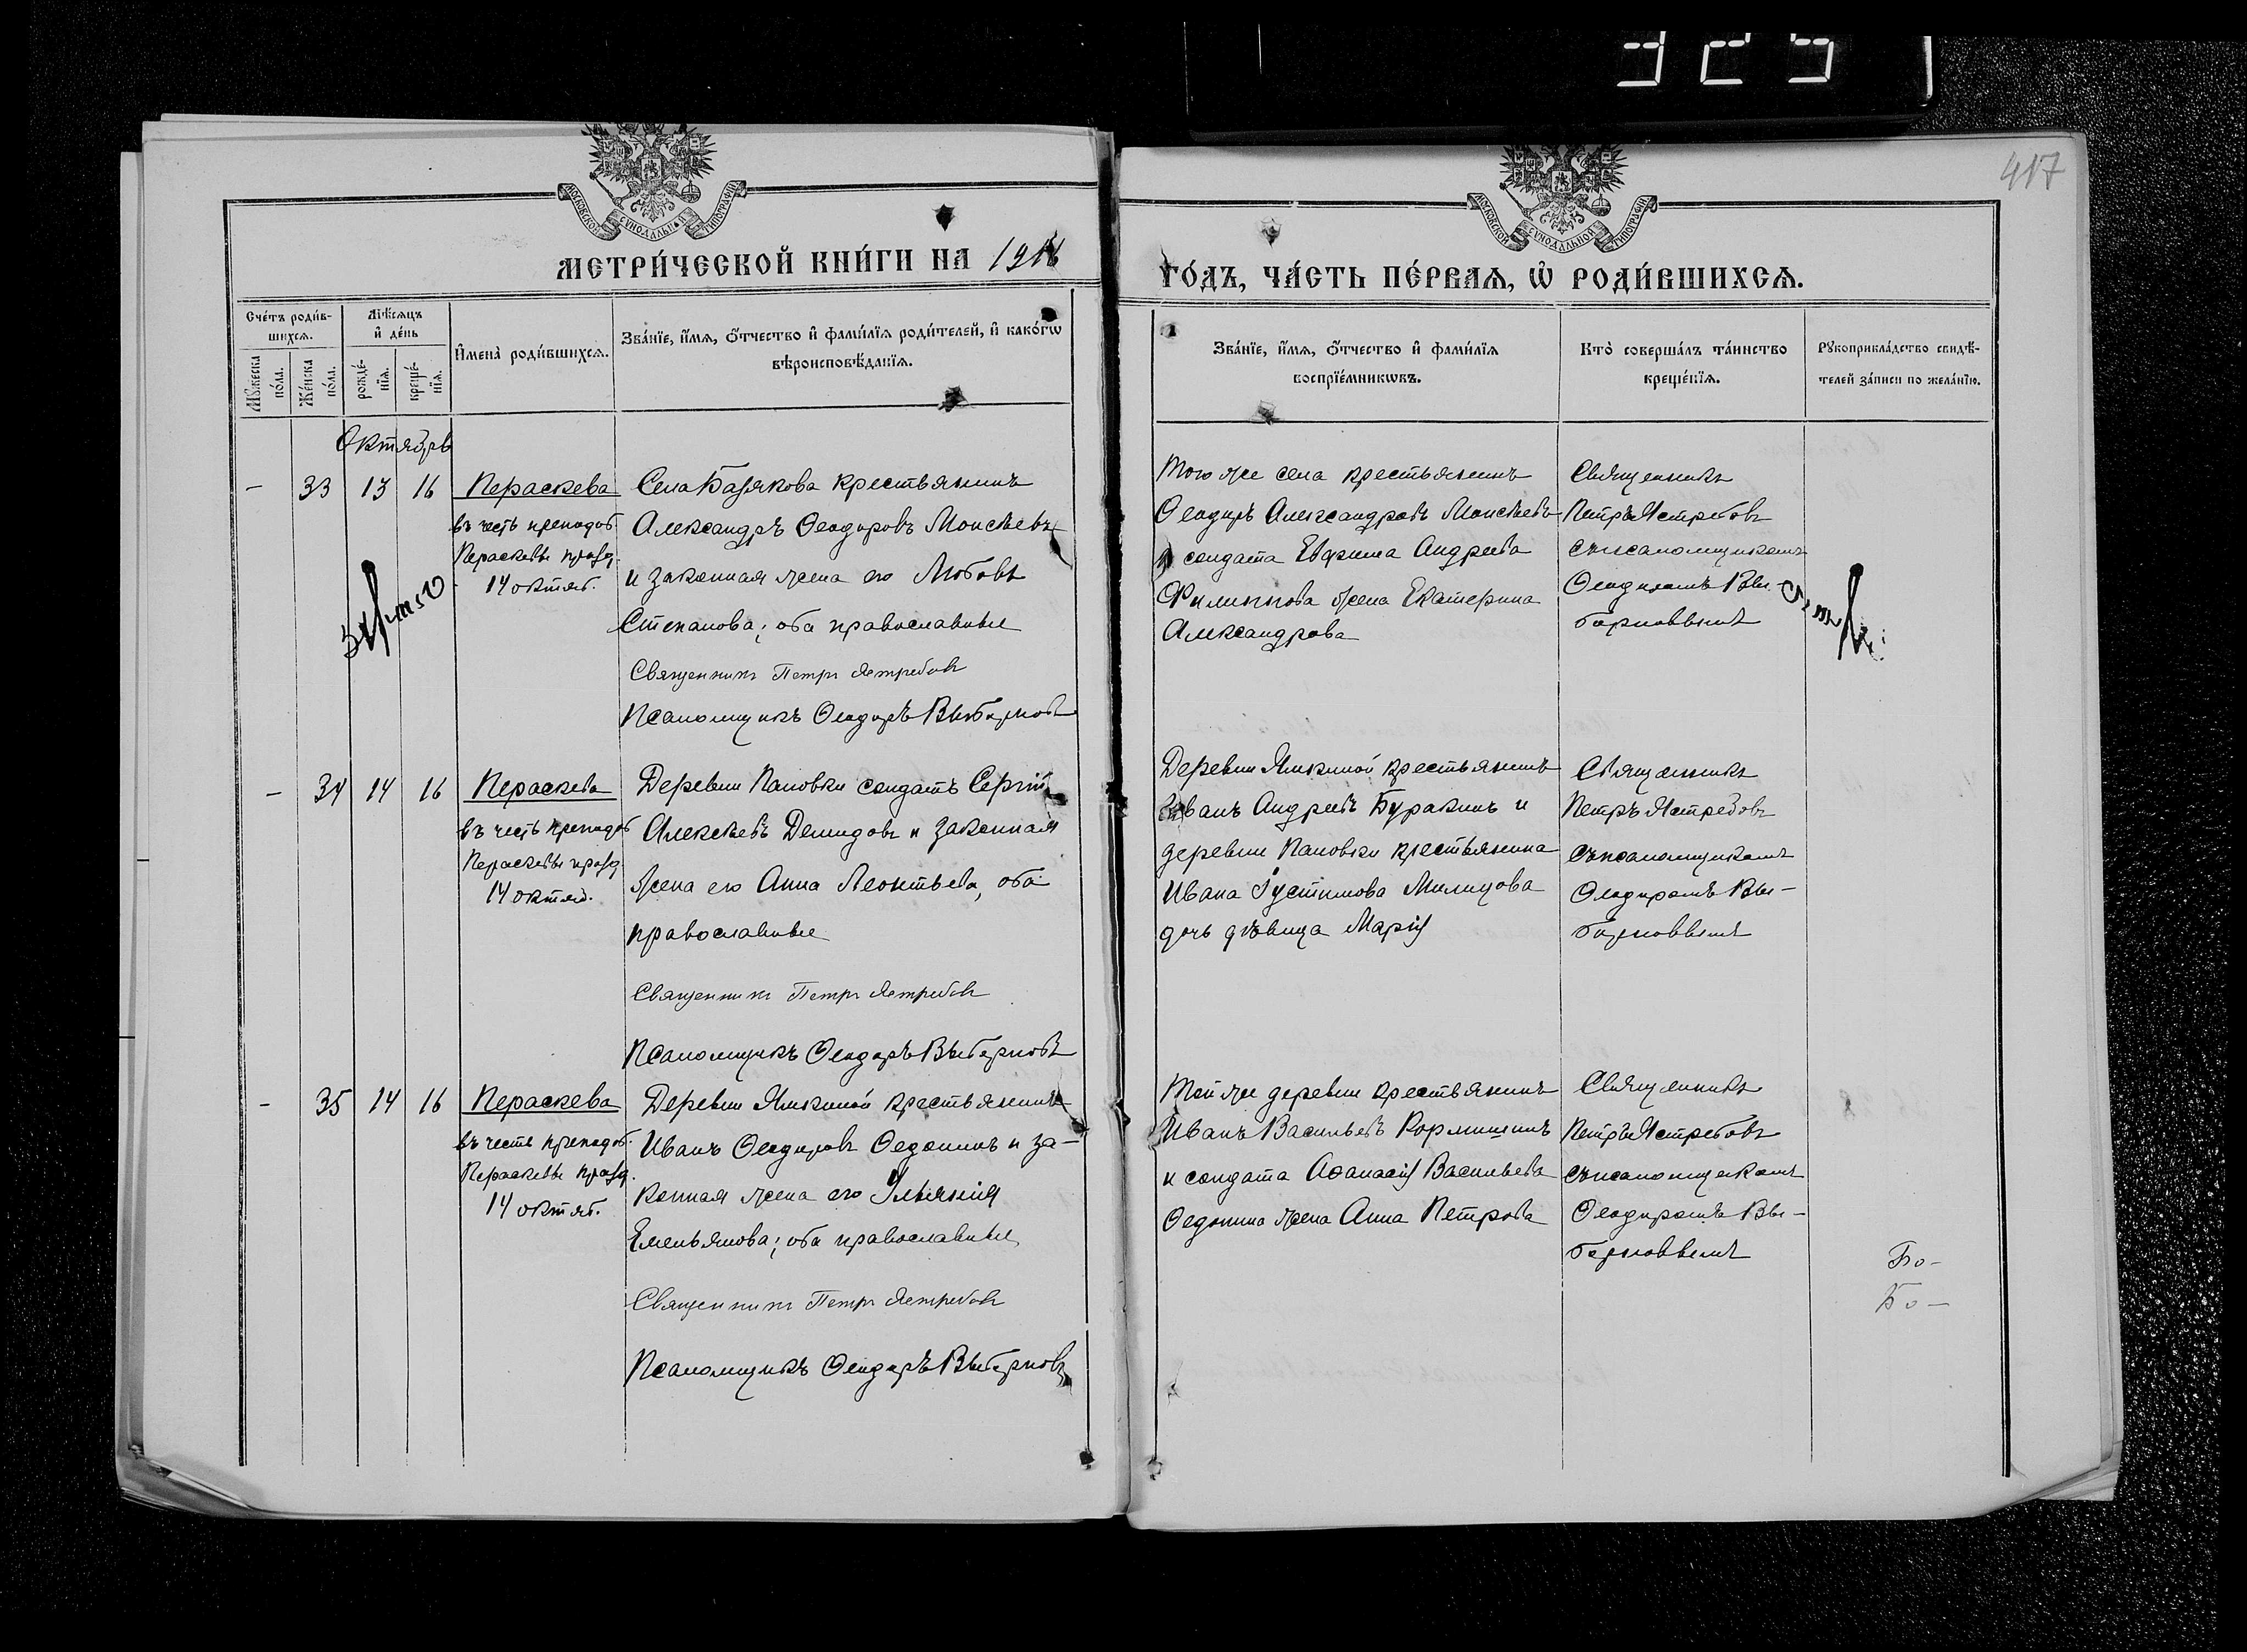 325
417
МОСКОВСКОЙ СѴНОДАЛЬНОЙ ТИПОГРАФІИ
МОСКОВСКОЙ СѴНОДАЛЬНОЙ ТИПОГРАФІИ
МЕТРИ́ЧЕСКОЙ КНИ́ГИ НА 1916
ГО́ДЪ, ЧА́СТЬ ПЕ́РВАѦ, Ѡ҆ РОДИ́ВШИХСѦ.
Сче́тъ роди́в-
шихсѧ.
Мꙋ́жеска по́ла.
Же́нска по́ла.
Мѣ́сѧцъ
и҆ де́нь
рожде́-нїѧ.
креще́-нїѧ.
И҆мена̀ роди́вшихсѧ.
Зва́нїе, и҆́мѧ, ѻ҆́тчество и҆ фами́лїѧ роди́телей, и҆ како́гѡ
вѣроисповѣ́данїѧ.
Зва́нїе, и҆́мѧ, ѻ҆́тчество и҆ фами́лїѧ
воспрїе́мникѡвъ.
Кто̀ соверша́лъ та́инство
креще́нїѧ.
Рꙋкоприкла́дство свидѣ́-
телей за́писи по жела́нїю.
Октябрь
— 33 13 16 Параскева
въ честь преподоб.
Параскевы празд.
14 октяб.
Села Базякова крестьянинъ
Александръ Ѳеодоровъ Моисѣевъ
и законная жена его Любовь
Степанова; оба православные
Священникъ Петръ Ястребовъ
Псаломщикъ Ѳеодоръ Выборновъ
Того же села крестьянинъ
Ѳеодоръ Александровъ Моисѣевъ
и солдата Евфима Андреева
Филиппова жена Екатерина
Александрова
Священникъ
Петръ Ястребовъ
съ псаломщикомъ
Ѳеодоромъ Вы-
борновымъ
— 34 14 16 Параскева
въ честь преподоб
Параскевы празд.
14 октяб.
Деревни Пановки солдатъ Сергій
Алексѣевъ Демидовъ и законная
жена его Анна Леонтьева, оба
православные
Священникъ Петръ Ястребовъ
Псаломщикъ Ѳеодоръ Выборновъ
Деревни Ямкиной крестьянинъ
Иванъ Андреевъ Буракинъ и
деревни Пановки крестьянина
Ивана Іустинова
дочь дѣвица Марія
Священникъ
Петръ Ястребовъ
съ псаломщикомъ
Ѳеодоромъ Вы-
борновымъ
— 35 14 16 Параскева
въ честь преподоб.
Параскевы празд.
14 октяб.
Деревни Ямкиной крестьянинъ
Иванъ Ѳеодоровъ Ѳедонинъ и за-
конная жена его Ульянія
Емельянова; оба православные
Священникъ Петръ Ястребовъ
Псаломщикъ Ѳеодоръ Выборновъ
Той же деревни крестьянинъ
Иванъ Васильевъ Кормишинъ
и солдата Аѳанасія Васильева
Ѳедонина жена Анна Петрова
Священникъ
Петръ Ястребовъ
съ псаломщикомъ
Ѳеодоромъ Вы-
борновымъ